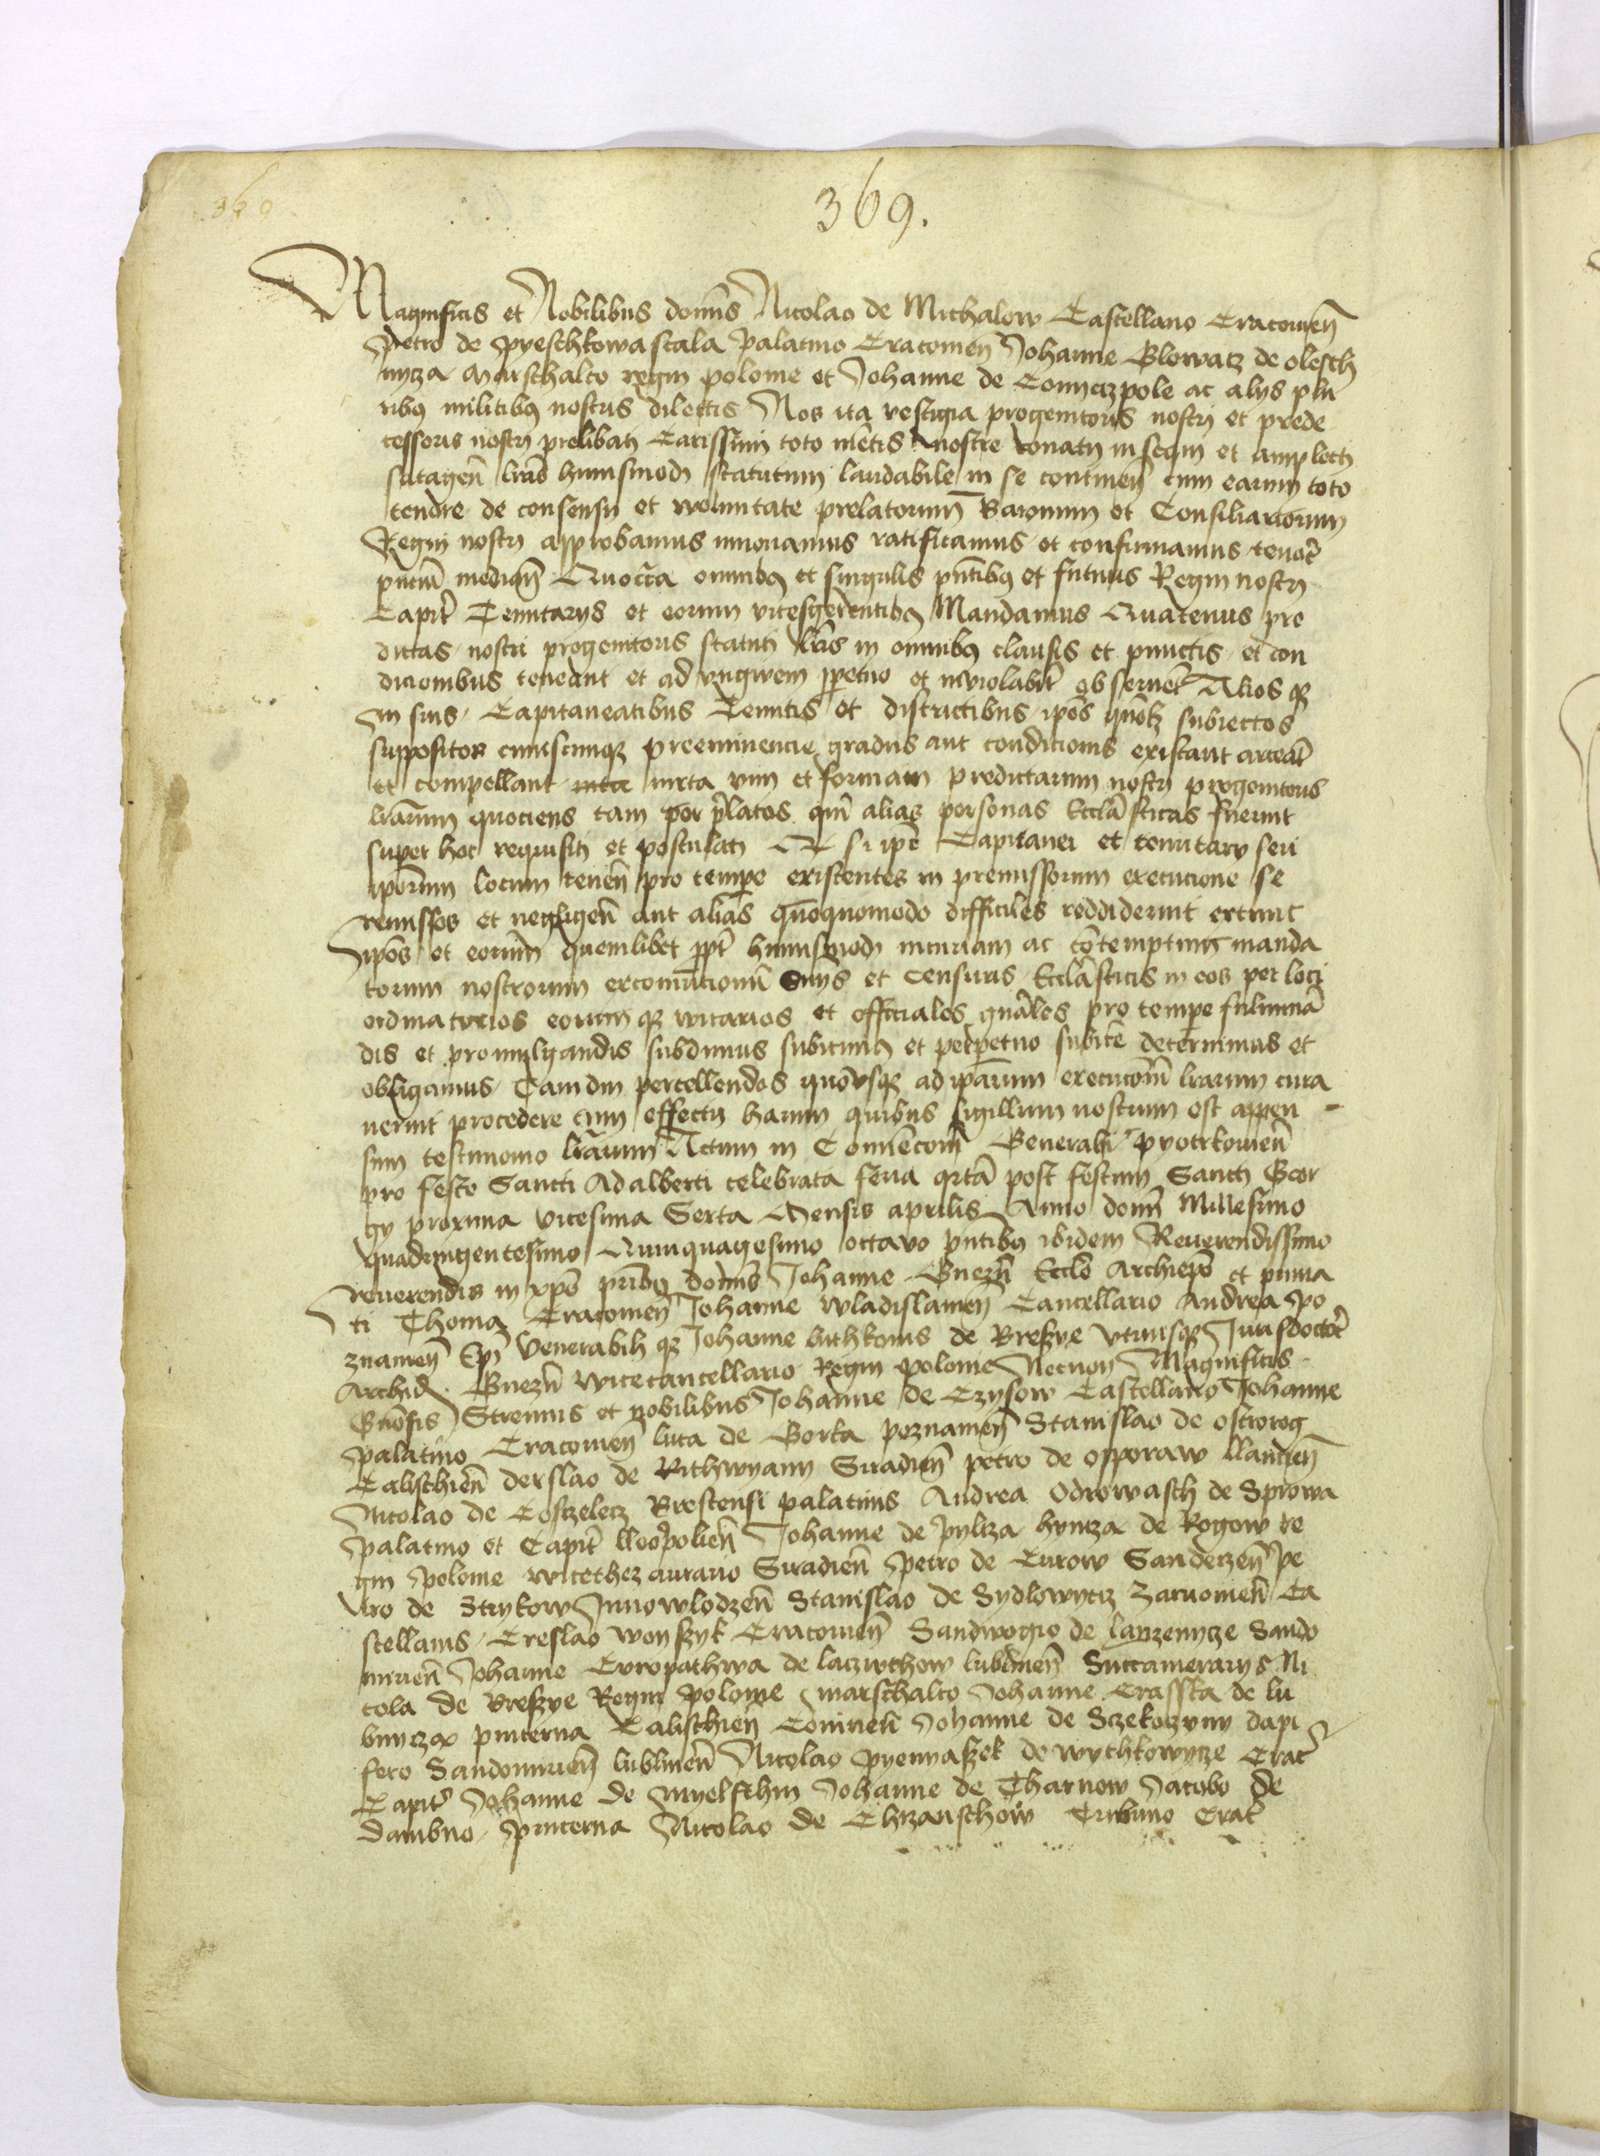 369
369.
Magnificis et Nobilibus domīs Nicolao de Michalow Castellano Cracovieñ
Petro de Pyeschkowa scala Palatino Cracovieñ Johanne Glowacz de olesch
nycza Marschalco regni polonie et Johanne de Conyeczpole ac alys plu
ribꝫ militibꝫ nostris dilectis Nos ita vestigia progenitoris nostri et prede
cessoris nostri prelibati Carissimi toto mētis nostre conatu insequi et amplecti
satageñ lrās huiusmodi statutum laudabile in se contineñ cum earum toto
tenore de consensu et voluntate prelatorum Baronum et Consiliariorum
Regni nostri approbamus innovamus ratificamus et confirmamus tenore
pñtium mediañ Quocirca omnibꝫ et singulis pñtibꝫ et futuris Regni nostri
Capit Tenutarys et eorum vicesgerentibꝫ Mandamus Quatenus pre
dictas nostri progenitoris statuti lrās in omnibꝫ clausis et punctis et con
dicionibus teneant et ad vngwem ppetuo et inviolabilr observent Alios qꝫ
in suis Capitaneatibus Tenutis et districtibus ipōs quolz subiectos
suppositos cuiuscunqꝫ preeminencie gradus aut condicionis existant arceāt
et compellant iuxta vim et formam predictarum nostri progenitoris
lrārum quociens tam per platos quā alias personas Ecclāsticas fuerint
super hoc requisiti et postulati Et si ipi Capitanei et tenutary seu
ipōrum locum teneñ pro tempe existentes in premissorum execucione se
remissos et negligeñ aut aliās quōquomodo difficiles reddiderint extunc
ipōs et eorum quemlibet ppt huiusmodi incuriam ac cōtemptum manda
torum nostrorum excomūcionū Snys et Censuris Ecclāsticis in eos per loci
ordinatorios eorum qꝫ vicarios et officiales gnāles pro tempe fulminā
dis et promulgandis subdimus subicimus et perpetuo subice determinus et
obligamus Tamdiu percellendos quōusqꝫ ad ipārum execucōm lrarum cura
verint procedere cum effectu harum quibus sigillum nostrum est appen
sum testimonio lrārum Actum in Convēcoñ Generali pyotrkovieñ
pro festo Sancti Adalberti celebrata feria qrtā post festum Sancti Geor
gy proxima vicesima Sexta Mensis aprilis Anno domī Millesimo
quadringentesimo Quinquagesimo octavo pñtibꝫ ibidem Reverendissimo
reverendis in xpō prībꝫ domīs Johanne Gnezñ Ecclē Archiepō et prima
ti Thoma Cracovieñ Johanne wladislavieñ Cancellario Andrea Po
znanieñ Epī Venerabili qꝫ Johanne luthkonis de Brezye vtriusqꝫ Juris doctor
Archid Gnezñ vicecancellario Regni polonie Necnon Magnificis
Gnōsis Strenuis et nobilibus Johanne de Czyzow Castellano Johanne
palatino Cracovieñ luca de Gorka poznanieñ Stanislao de ostrorog
Calischieñ derslao de Rithwyany Siradieñ petro de opporaw llancieñ
Nicolao de Cosczelecz Brestensi palatinis Andrea Odrowasch de Sprowa
palatino et Capit lleopolieñ Johanne de pylcza hyncza de Rogow re
gni polonie vicethezaurario Siradieñ Petro de Curow Sandeczeñ Pe
tro de Strykow Junowlodzeñ Stanislao de Sydlowycz Zarnovieñ Ca
stellanis Creslao woyszyk Cracovieñ Sandivogio de lanzenycze Sando
mirieñ Johanne Cropathwa de lanczuchow lublineñ Succamerarys Ni
cola de Brezye Regni polonie marschalco Johanne Crassca de lu
bnycza pincerna Calischieñ Conineñ Johanne de Sczekoczyny dapi
fero Sandomirieñ lublineñ Nicolao pyenyaszek de wythkowycze Crac
Capit Johanne de Myelschtin Johanne de Tharnow Jacobo de
dambno pincerna Nicolao de Chrzanschow Tribuno Crac